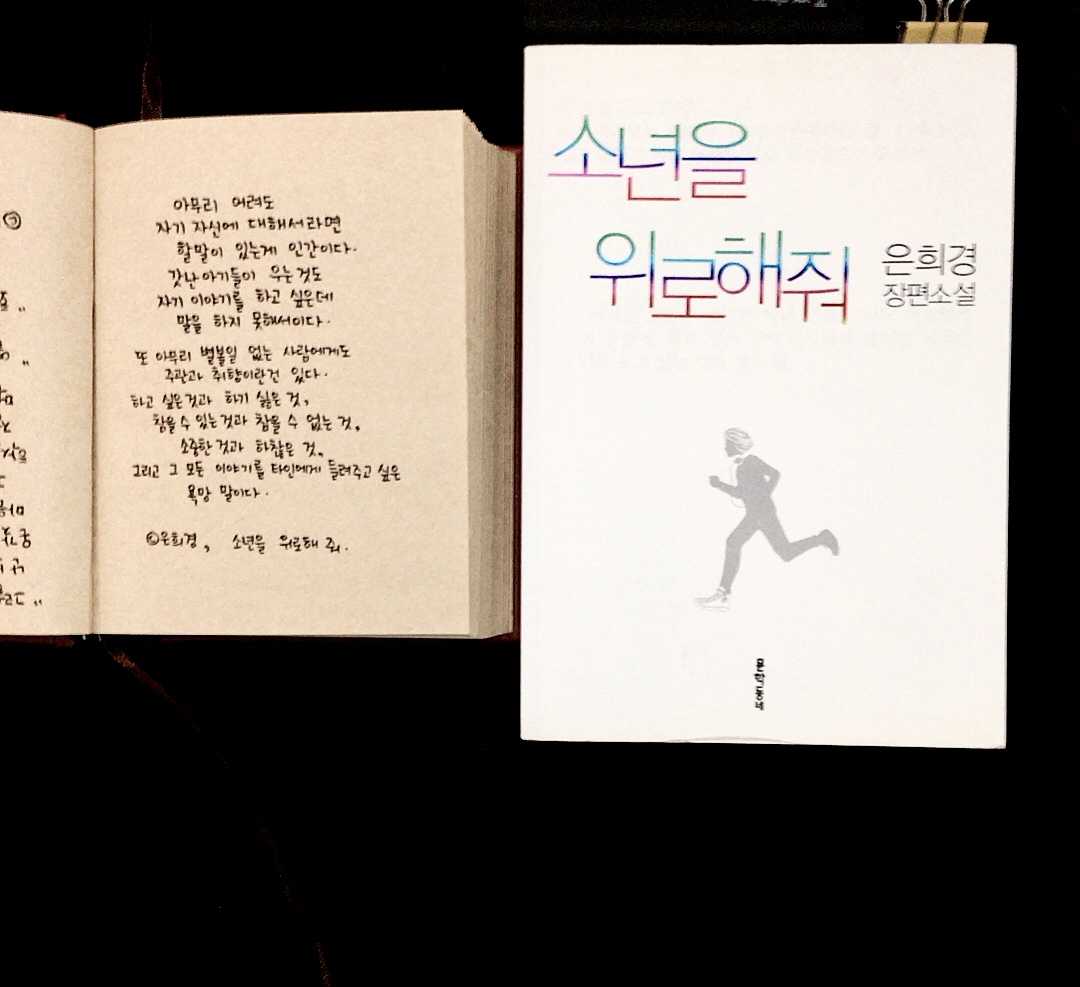 아무리 어려도
자기 자신에 대해서라면
할말이 있는게 인간이다.
갓난아기들이 우는것도
자기 이야기를 하고 싶은데
말을 하지 못해서이다.
또 아무리 별볼일 없는 사람에게도
주관과 취향이란건 있다.
하고 싶은것과 하기 싫은 것,
참을 수 있는것과 참을 수 없는 것,
소중한 것과 하찮은 것,
그리고 그 모든 이야기를 타인에게 들려주고 싶은
욕망 말이다.
©은희경, 소년을 위로해 줘.
소년을
위로해줘
은희경
장편소설
문학동네